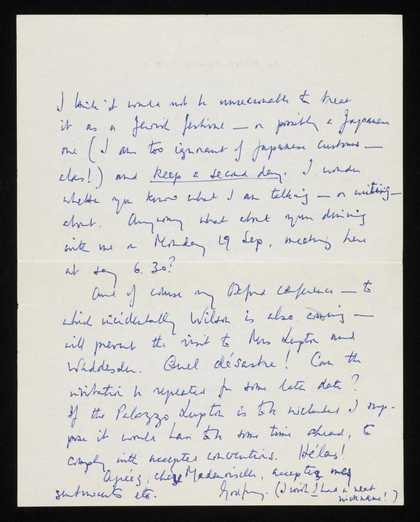 I think it would not be unreasonable to treat
it as a Jewish festival – or possibly a Japanese
one (I am too ignorant of Japanese customs –
alas!) and keep a second day. I wonder
whether you know what I am talking – or writing –
about. Anyway what about your dining
with me on Monday 19 Sep, meeting here
at say 6.30?
And of course my Oxford conference – to
which incidentally Wilson is also coming –
will prevent the visit to Mrs Lupton and
Waddesdon. Quel désastre! Can the
invitation be repeated for some later date?
If the Palazzo Lupton is to be included I sup-
pose it would have to be some time ahead, to
comply with accepted conventions. Hélas!
Agréez, chère Mademoiselle, acceptez mes
sentiments etc.
(I wish I had a neat
nickname!)